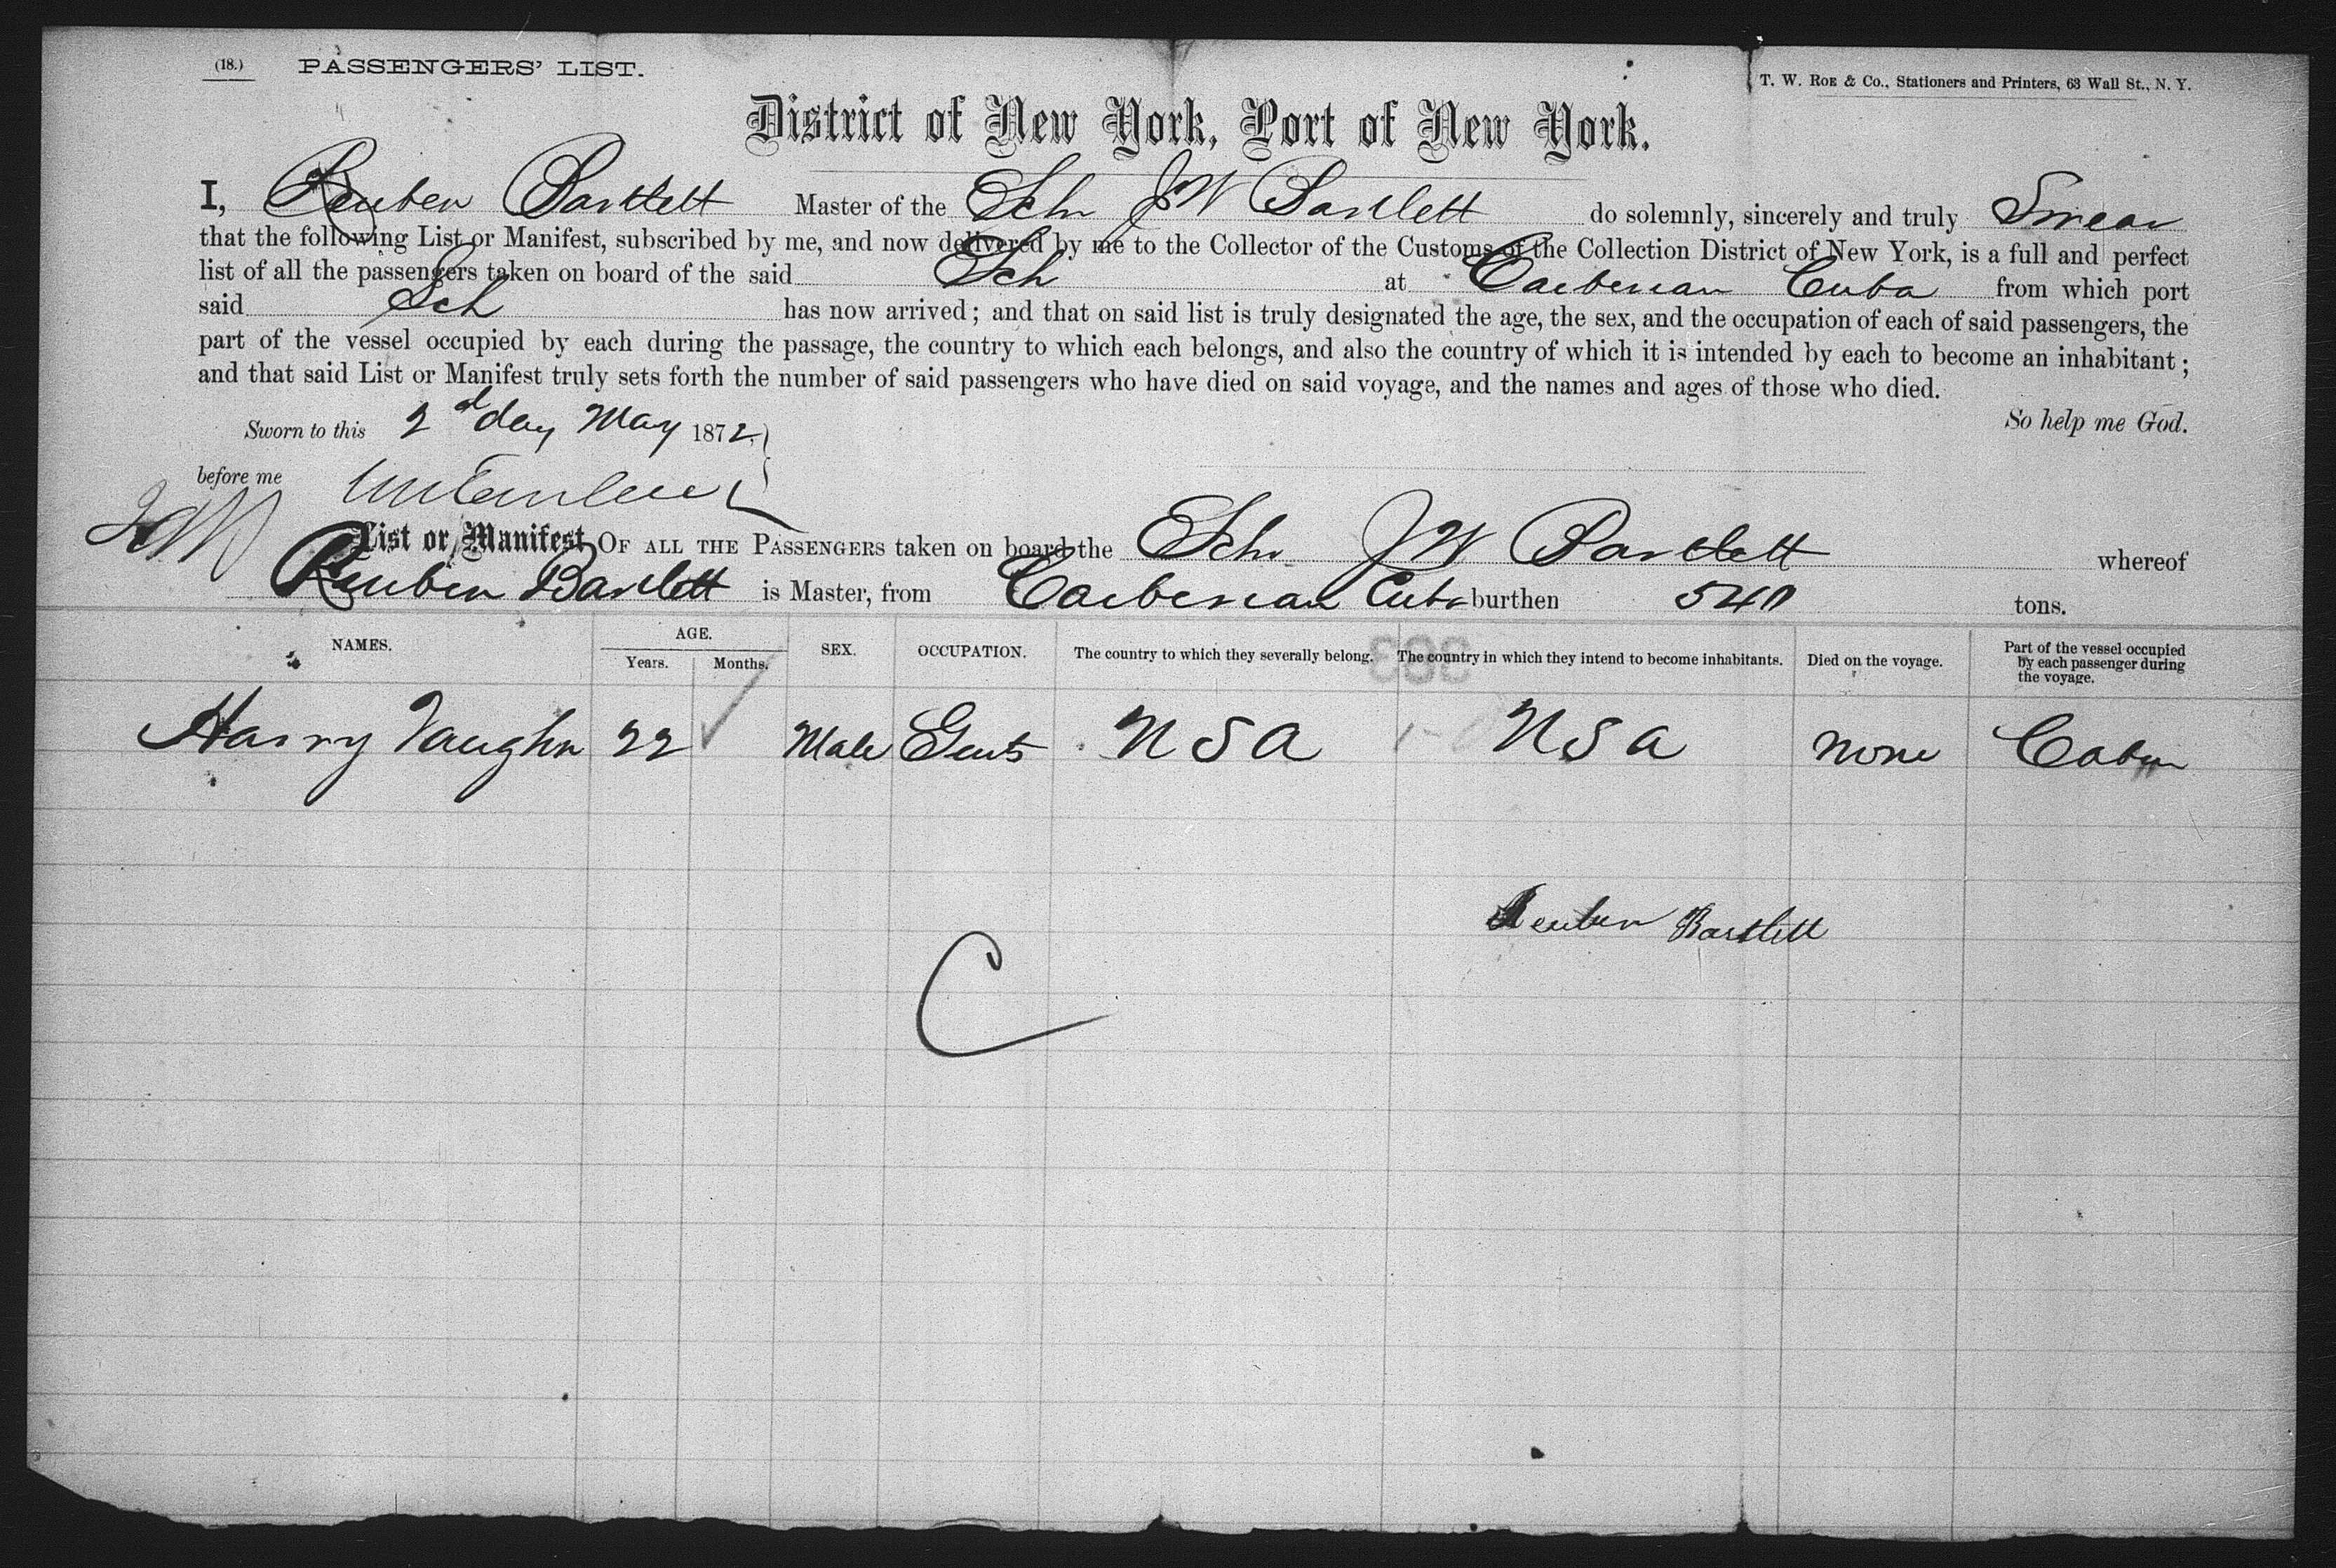 (18.) PASSENGERS' LIST.
T. W. ROE & Co., Stationers and Printers, 63 Wall St., N. Y.
District of New York, Port of New York.
I, Reuben Bartlett Master of the Schr J W Bartlett do solemnly, sincerely and truly Swear
that the following List or Manifest, subscribed by me, and now delivered by me to the Collector of the Customs of the Collection District of New York, is a full and perfect
list of all the passengers taken on board of the said Sch at Caiberian Cuba from which port
said Sch has now arrived; and that on said list is truly designated the age, the sex, and the occupation of each of said passengers, the
part of the vessel occupied by each during the passage, the country to which each belongs, and also the country of which it is intended by each to become an inhabitant;
and that said List or Manifest truly sets forth the number of said passengers who have died on said voyage, and the names and ages of those who died.
So help me God.
Sworn to this 2d day May 1872,
before me
List or Manifest OF ALL THE PASSENGERS taken on board the Schr J W Bartlett whereof
Reuben Bartlett is Master, from Caiberian Cuba burthen 540 tons.
NAMES. AGE. Years. Months. SEX. OCCUPATION. The country to which they severally belong. The country in which they intend to become inhabitants. Died on the voyage. Part of the vessel occupied by each passenger during the voyage.
Harry Vaughn 22 Male Gents U S A U S A none Cabin
Reuben Bartlett
C